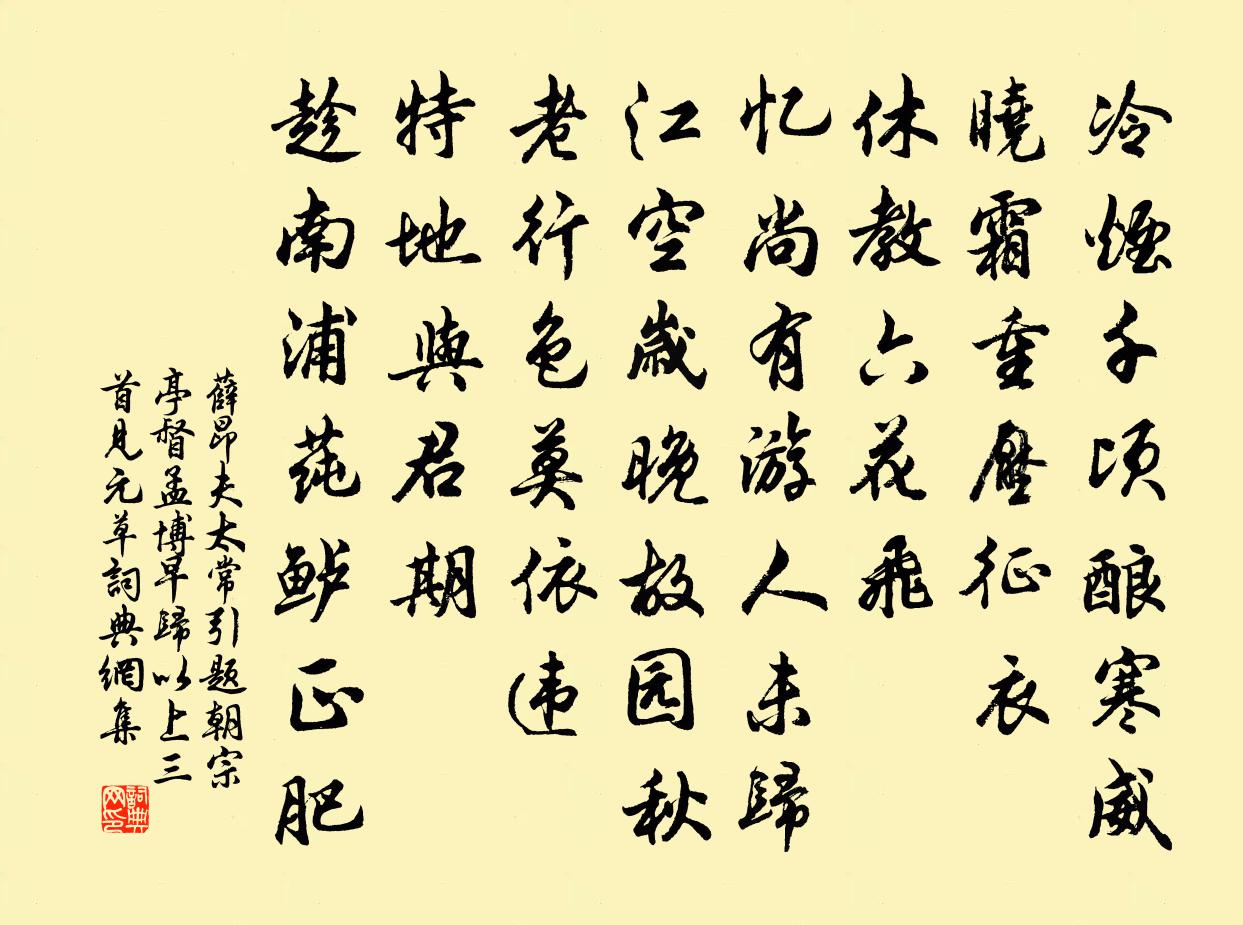 冷煙千顷酿寒威
曉霜重壓征衣
休教六花飛
忆尚有游人未歸
江空歲晚故园秋
老行色莫依违
特地與君期
趁南浦莼鲈正肥
薛昂夫太常引题朝宗
亭督孟博早歸以上三
首見元草詞典網集
詞典网印